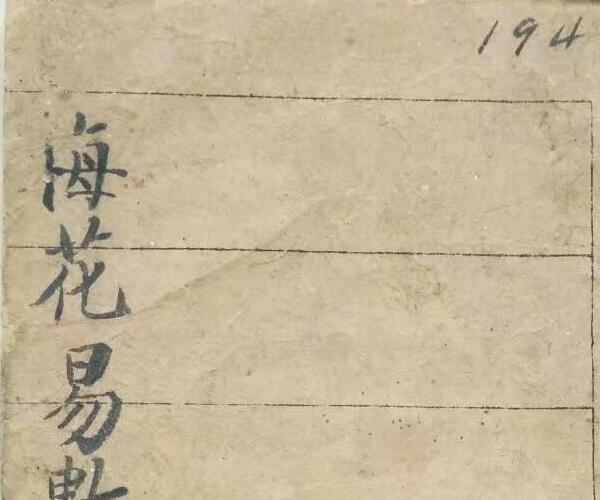 194
海花易